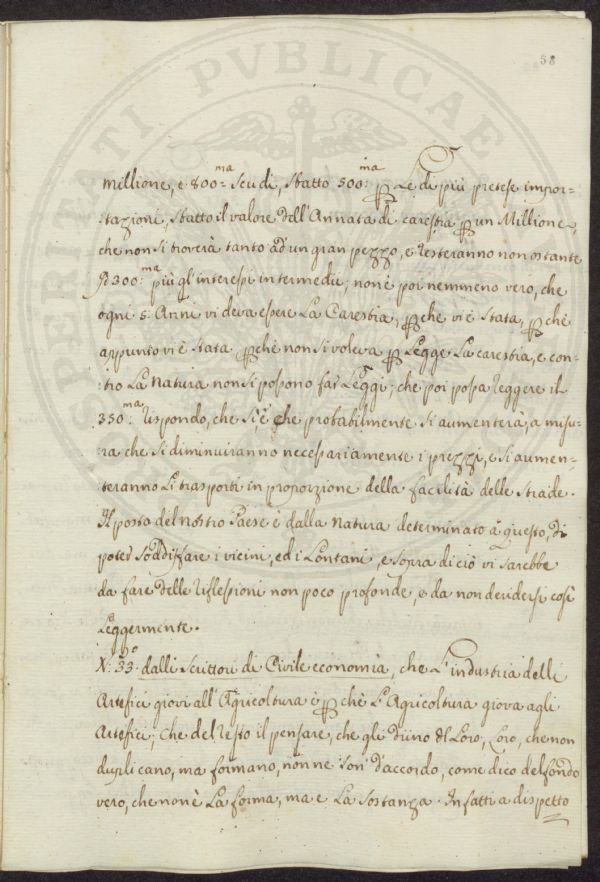 58
millione, e 800=ma Scudi, Sbatto 500:ma p Le di più pretese impor=
:tazioni, Sbatto il valore dell'Annata di carestia p un Millione,
che non si troverà tanto ad un gran pezzo, e resteranno non ostante
300:ma più gl'interessi intermedii; non è poi nemmeno vero, che
ogni 5: Anni vi deva essere La Carestia, pchè vi è Stata, pchè
appunto vi è Stata pchè non si voleva p Legge La carestia, e con=
:tro La Natura non si possono far Leggi; che poi possa reggere il
350:ma rispondo, che Sì, e che probabilmente Si aumenterà, a misu=
ra che Si diminuiranno necessariamente i prezzi, e Si aumen=
teranno Li trasporti in proporzione della facilità delle Strade.
Il posto del nostro Paese è dalla Natura determinato à questo, di
poter Soddisfare i vicini, ed i Lontani, e Sopra di ciò vi Sarebbe
da fare delle riflessioni non poco profonde, e da non deridersi così
Leggermente.
N:o 33: dalli Scrittori di Civile economia, che L'industria delli
Artefici giovi all'Agricoltura è pchè L'Agricoltura giova agli
Artefici; Che del resto il pensare, che gli diino del Loro, Loro, che non
duplicano, ma formano, non ne Son d'accordo, come dico del fondo
vero, che non è La forma, ma e La Sostanza. Infatti a dispetto
SPERITATI PVBLICAE